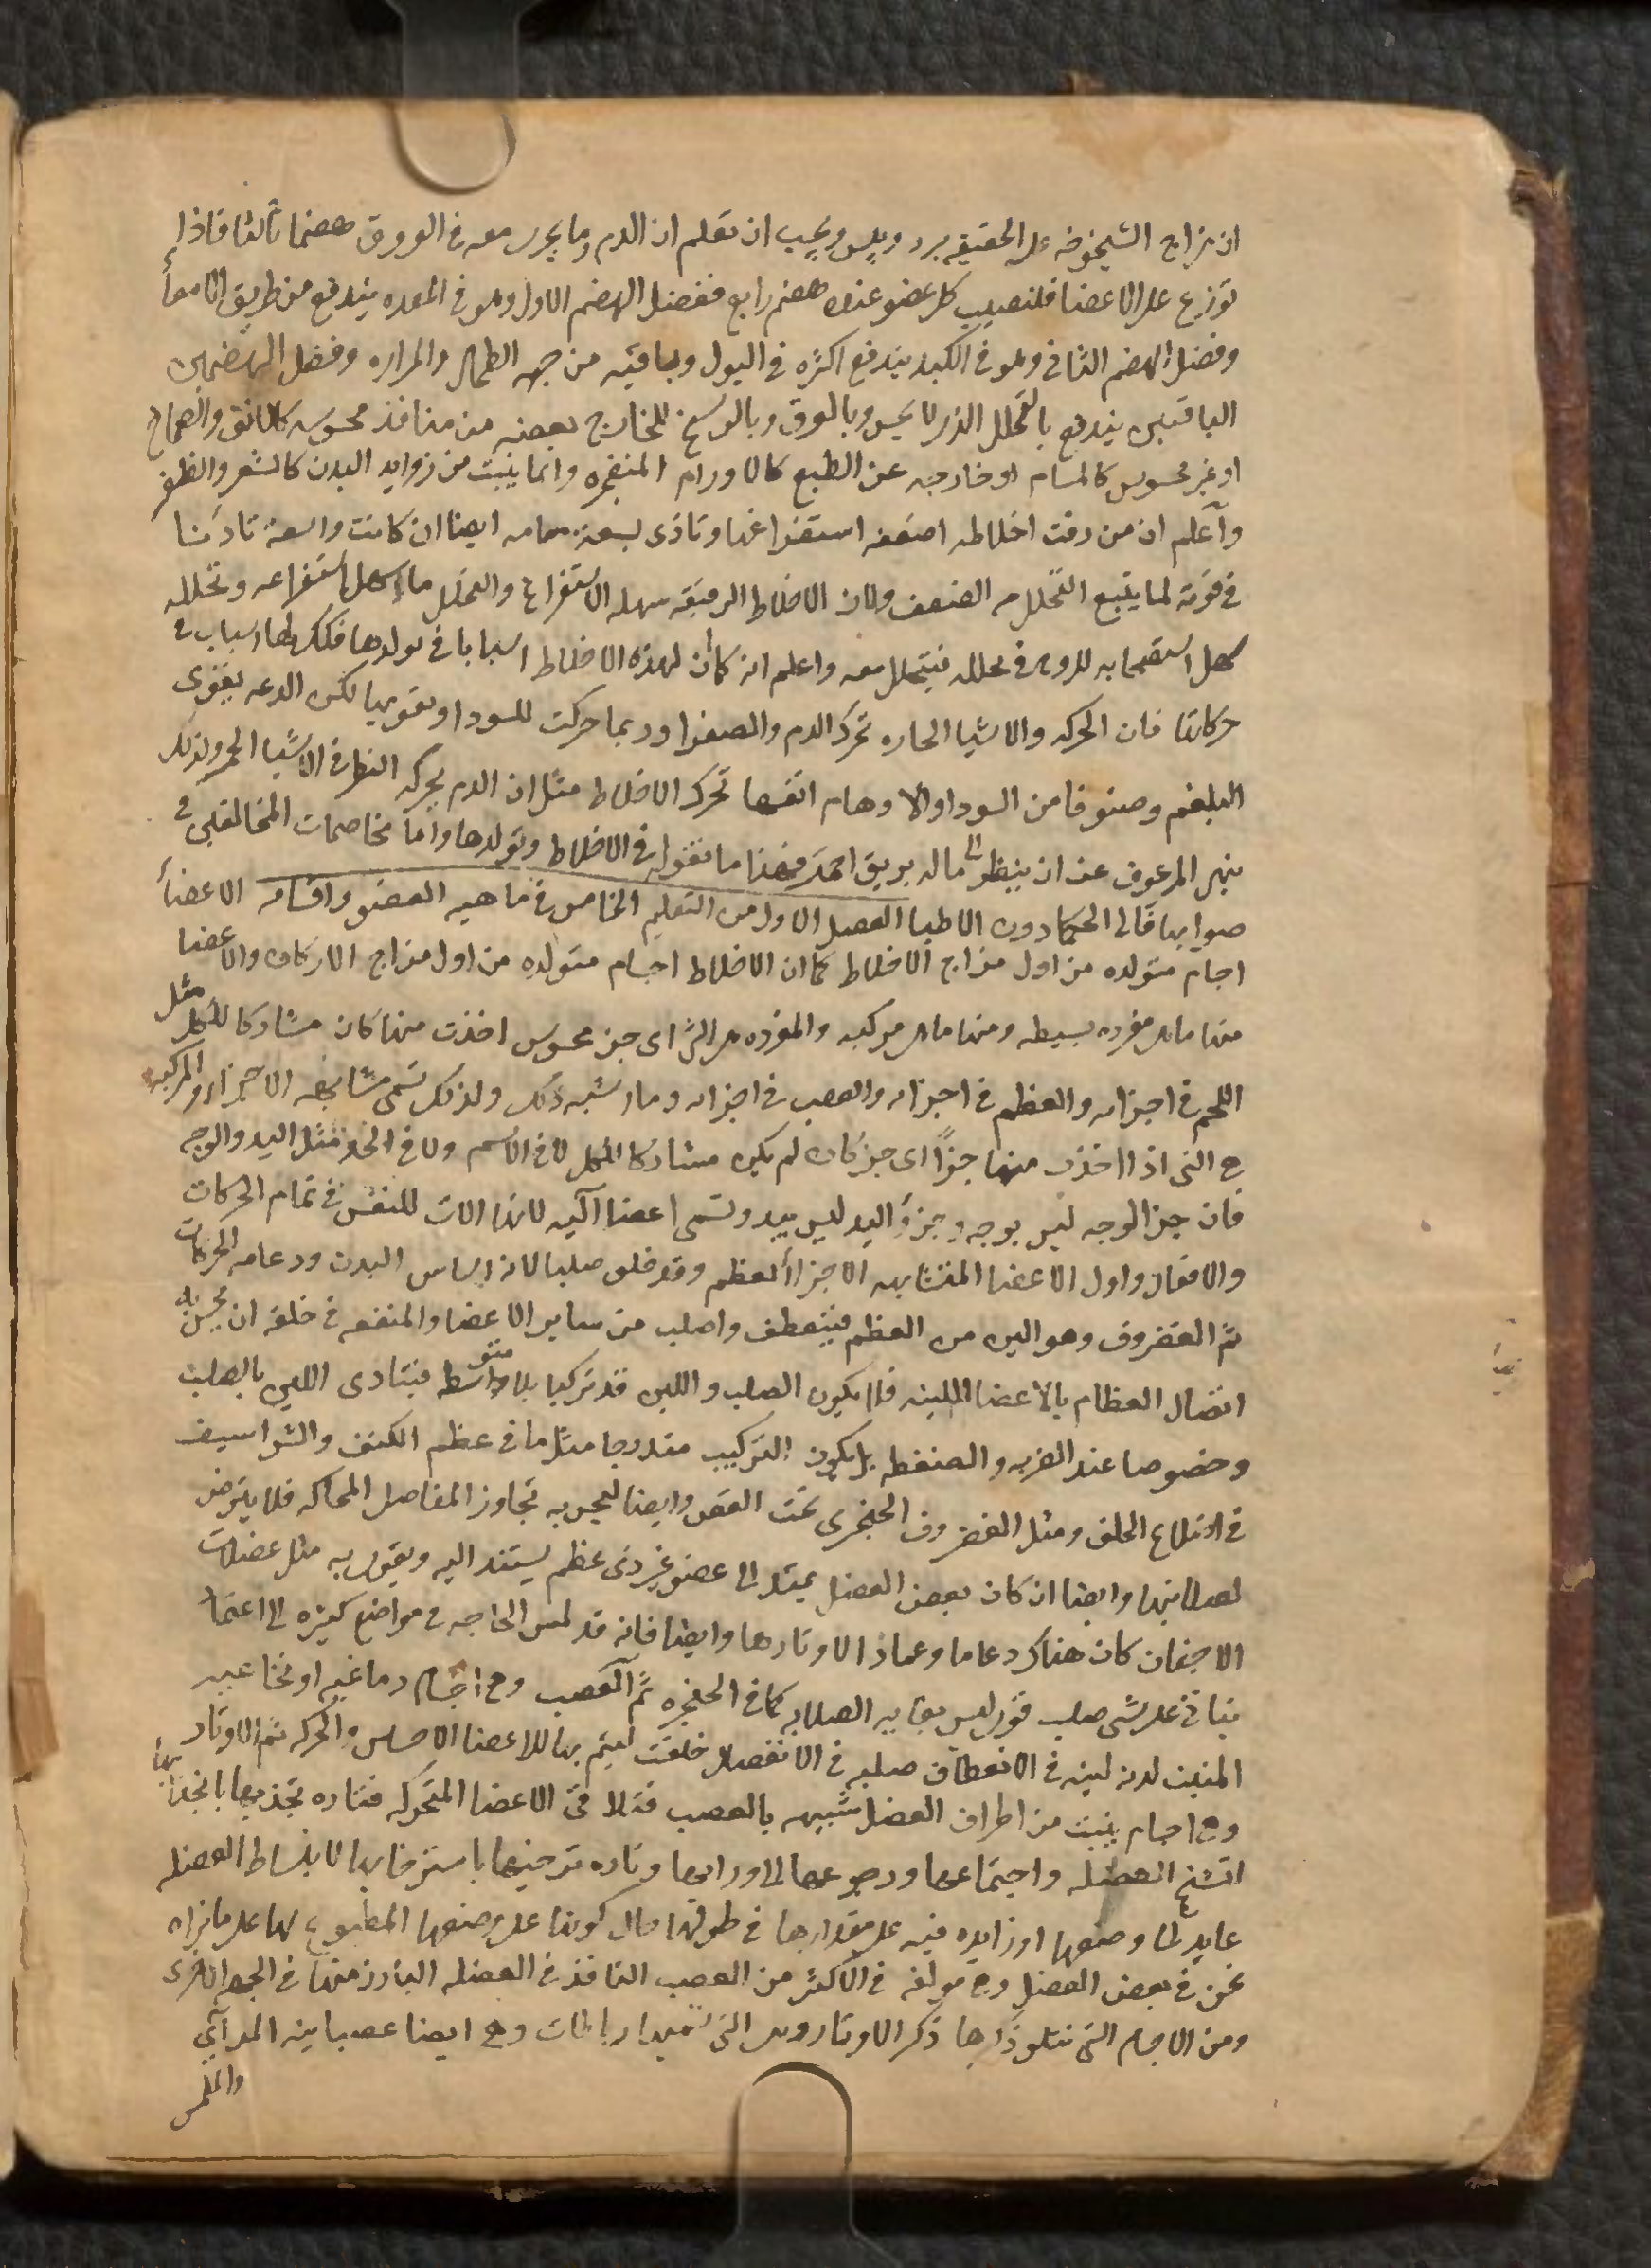 ان مزاج الشيخوخه على الحقيقه برد ويبس ويجب ان تعلم ان الدم وما يجرى معه فى العروق هضما ثالثا فاذا
توزع على الاعضا فلنصيب كل عضو عنده هضم رابع ففضل الهضم الاول وهو فى المعده يندفع من طريق الامعا
وفضل الهضم الثانى وهو فى الكبد يندفع اكثره فى البول وباقيه من جهه الطحال والمراره وفضل الهضمين
الباقيين يندفع بالتحلل الذى لا يحس وبالعرق وبالوسخ الخارج بعضه من منافذ محسوسه كالانف والصماخ
او غير محسوس كالمسام او خارجه عن الطبع كالاورام المنفجره وانما ينبت من زوايد البدن كالشعر والظفر
واعلم ان من رقت اخلاطه اضعفه استفراغها وتاذى بسعة مسامه ايضا ان كانت واسعة تاذيا
فى قوته لما يتبع التحلل من الضعف ولان الاخلاط الرقيقه سهله الاستفراغ والتحلل ما سهل استفراغه وتحلله
سهل استصحابه للروح فى تحلله فيتحلل معه واعلم انه كما ان لهذه الاخلاط اسبابا فى تولدها فكذلك لها اسباب فى
حركاتها فان الحركه والاشيا الحاره تحرك الدم والصفرا وربما حركت السودا وتقويها لكن الدعه يقوى
البلغم وصنوفا من السودا والاوهام انفسها تحرك الاخلاط مثل ان الدم يحركه النظر فى الاشيا الحمر ولذلك
ينهى المرعوف عن ان ينظر الى ما له بريق احمر فهذا ما نقوله فى الاخلاط وتولدها واما مخاصمات المخالفين فى
صوابها فالى الحكما دون الاطبا الفصل الاول من التعليم الخامس فى ماهيه العضو واقسامه الاعضا
اجسام متولده من اول مزاج الاخلاط كما ان الاخلاط اجسام متولده من اول مزاج الاركان والاعضا
منها ما هى مفرده بسيطه ومنها ما هى مركبه والمفرده هى التى اى جز محسوس اخذت منها كان مشاركا للكل مثل
اللحم فى اجزائه والعظم فى اجزائه والعصب فى اجزائه وما اشبه ذلك ولذلك تسمى متشابهه الاجزا والمركبه
هى التى اذا اخذت منها جزًا اى جز كان لم يكن مشاركا للكل لا فى الاسم ولا فى الحد مثل اليد والوجه
فان جز الوجه ليس بوجه وجزو اليد ليس بيد وتسمى اعضا آليه لانها الات للنفس فى تمام الحركات
والافعال واول الاعضا المتشابهه الاجزا العظم وقد خلق صلبا لانه اساس البدن ودعامه الحركات
ثم الغضروف وهو الين من العظم فينعطف واصلب من ساير الاعضا والمنفعه فى خلقه ان يحسن به
اتصال العظام بالاعضا اللينه فلا يكون الصلب واللين قد تركبا بلا متوسط فيتاذى اللين بالصلب
وخصوصا عند الضربه والضغطه بل يكون التركيب متدرجا مثل ما فى عظم الكتف والشراسيف
فى اضلاع الخلف ومثل الغضروف الحنجرى تحت القص وايضا ليحسن به تجاوز المفاصل المحاكه فلا يترض
لصلابتها وايضا ان كان بعض العضل يمتد الى عضو غير ذى عظم يستند اليه ويقوى به مثل عضلات
الاجفان كان هناك دعاما وعمادا لاوتارها وايضا فانه قد تمس الحاجه فى مواضع كثيره الى اعتماد
يتاتى على شى صلب قوى ليس بغايه الصلابه كما فى الحنجره ثم العصب وهى اجسام دماغيه او نخاعيه
المنبت لدنه لينه فى الانعطاف صلبه فى الانفصال خلقت ليتم بها للاعضا الاحساس والحركه ثم الاوتار
وهى اجسام ينبت من اطراف العضل شبيهه بالعصب فتلاقى الاعضا المتحركه فتاره تجذبها بانجذابها
لتشنج العضله واجتماعها ورجوعها الى ورائها وتاره ترخيها باسترخائها لانبساط العضله
عايده الى وضعها او زايده فيه على مقدارها فى طولها حال كونها على وضعها المطبوع لها على ما نراه
نحن فى بعض العضل وهى مولفه فى الاكثر من العصب النافذ فى العضله البارز منها فى الجهه الاخرى
ومن الاجسام التى نتلو ذكرها ذكر الاوتار وهى التى نسميها رباطات وهى ايضا عصبانيه المرآى
والملمس